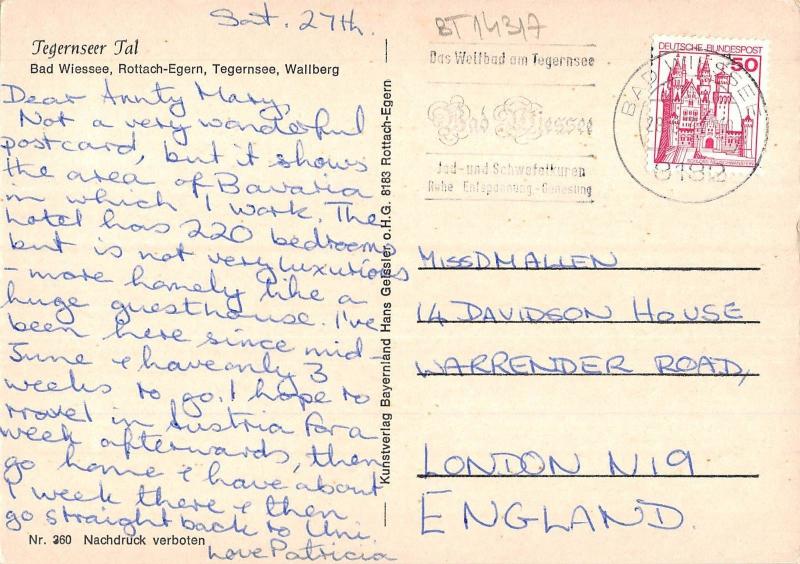 Sat. 27th.
BT14317
Tegernseer Tal
Bad Wiessee, Rottach-Egern, Tegernsee, Wallberg
Dear Aunty Mary,
Not a very wonderful
postcard, but it shows
the area of Bavaria
in which I work. The
hotel has 220 bedrooms
but is not very luxurious
- more homely like a
huge guesthouse. I've
been here since mid-
June & have only 3
weeks to go. I hope to
travel in Austria for a
week afterwards, then
go home & have about
1 week there & then
go straight back to Uni.
Love Patricia
Nr. 360 Nachdruck verboten
Kunstverlag Bayernland Hans Geissler o.H.G. 8183 Rottach-Egern
Das Weltbad am Tegernsee
Bad Wiessee
Jod- und Schwefelkuren
Ruhe Entspannung - Genesung
DEUTSCHE BUNDESPOST
50
BAD WIESSEE
8182
MISS D MALLEN
14 DAVIDSON HOUSE
WARRENDER ROAD,
LONDON N19
ENGLAND.